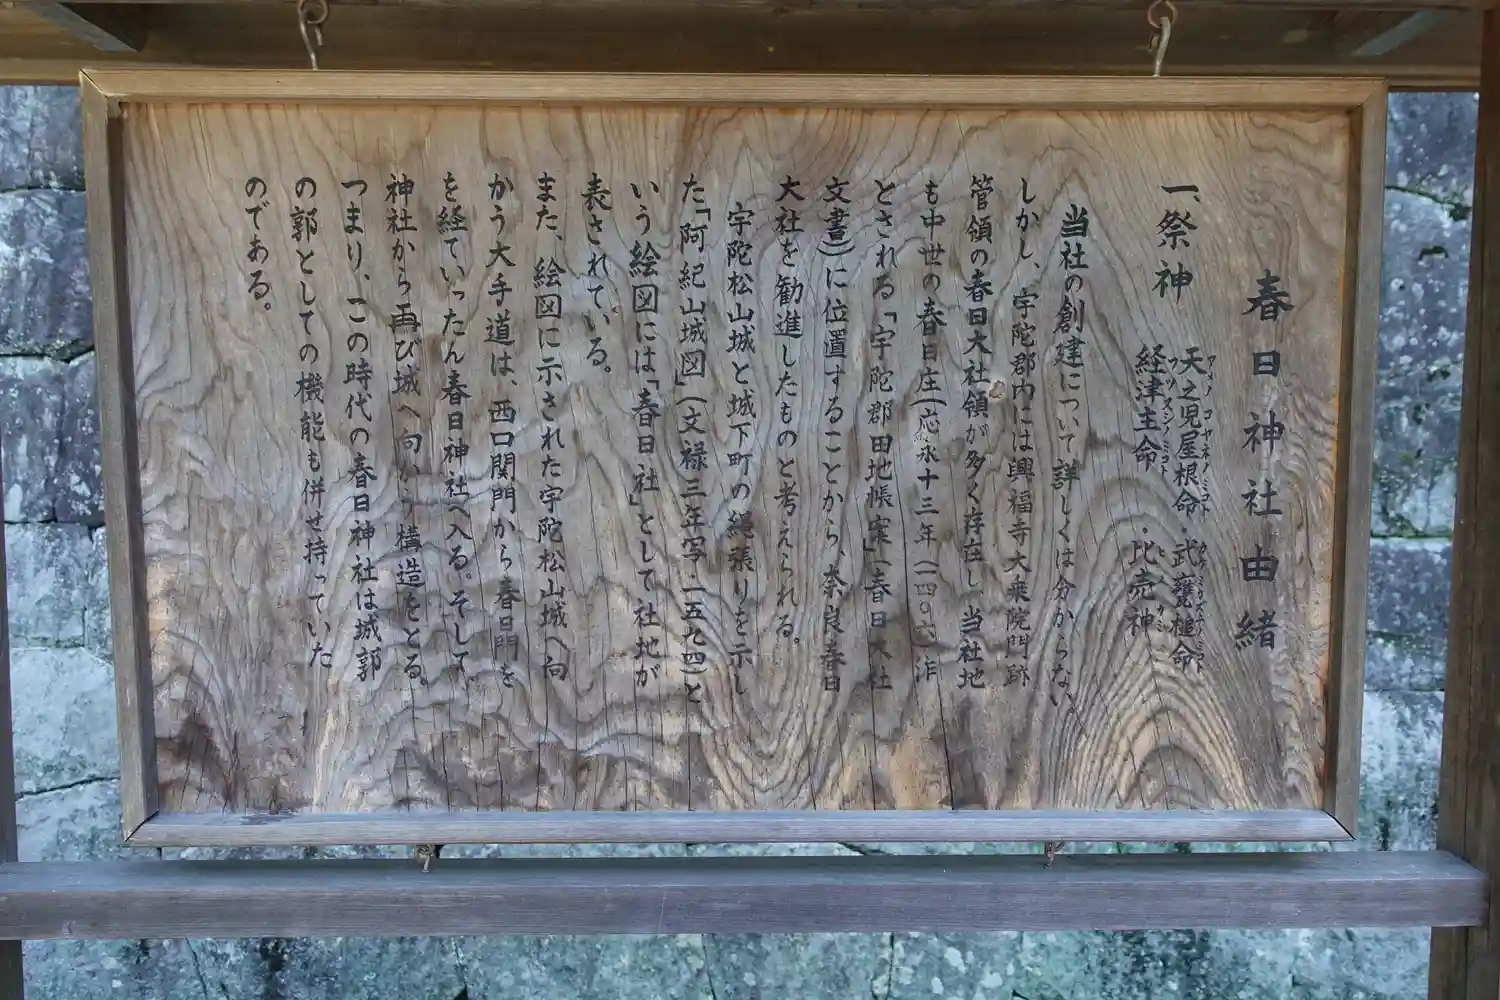 春日神社由緒
一、祭神
天之児屋根命・武甕槌命
アマノコヤネノミコト
タケミカズチノミコト
経津主命・比売神
フツヌシノミコト
ヒメカミ
当社の創建について詳しくは分からない。
しかし、宇陀郡内には興福寺大乗院門跡
管領の春日大社領が多く存在し、当社地
も中世の春日庄(応永十三年(一四〇六)作
とされる「宇陀郡田地帳案」(春日大社
文書)に位置することから、奈良春日
大社を勧進したものと考えられる。
宇陀松山城と城下町の縄張りを示し
た「阿紀山城図」(文禄三年写・一五九四)と
いう絵図には「春日社」として社地が
表されている。
また、絵図に示された宇陀松山城へ向
かう大手道は、西口関門から春日門を
を経ていったん春日神社へ入る。そして、
神社から再び城へ向かう構造をとる。
つまり、この時代の春日神社は城郭
の郭としての機能も併せ持っていた
のである。